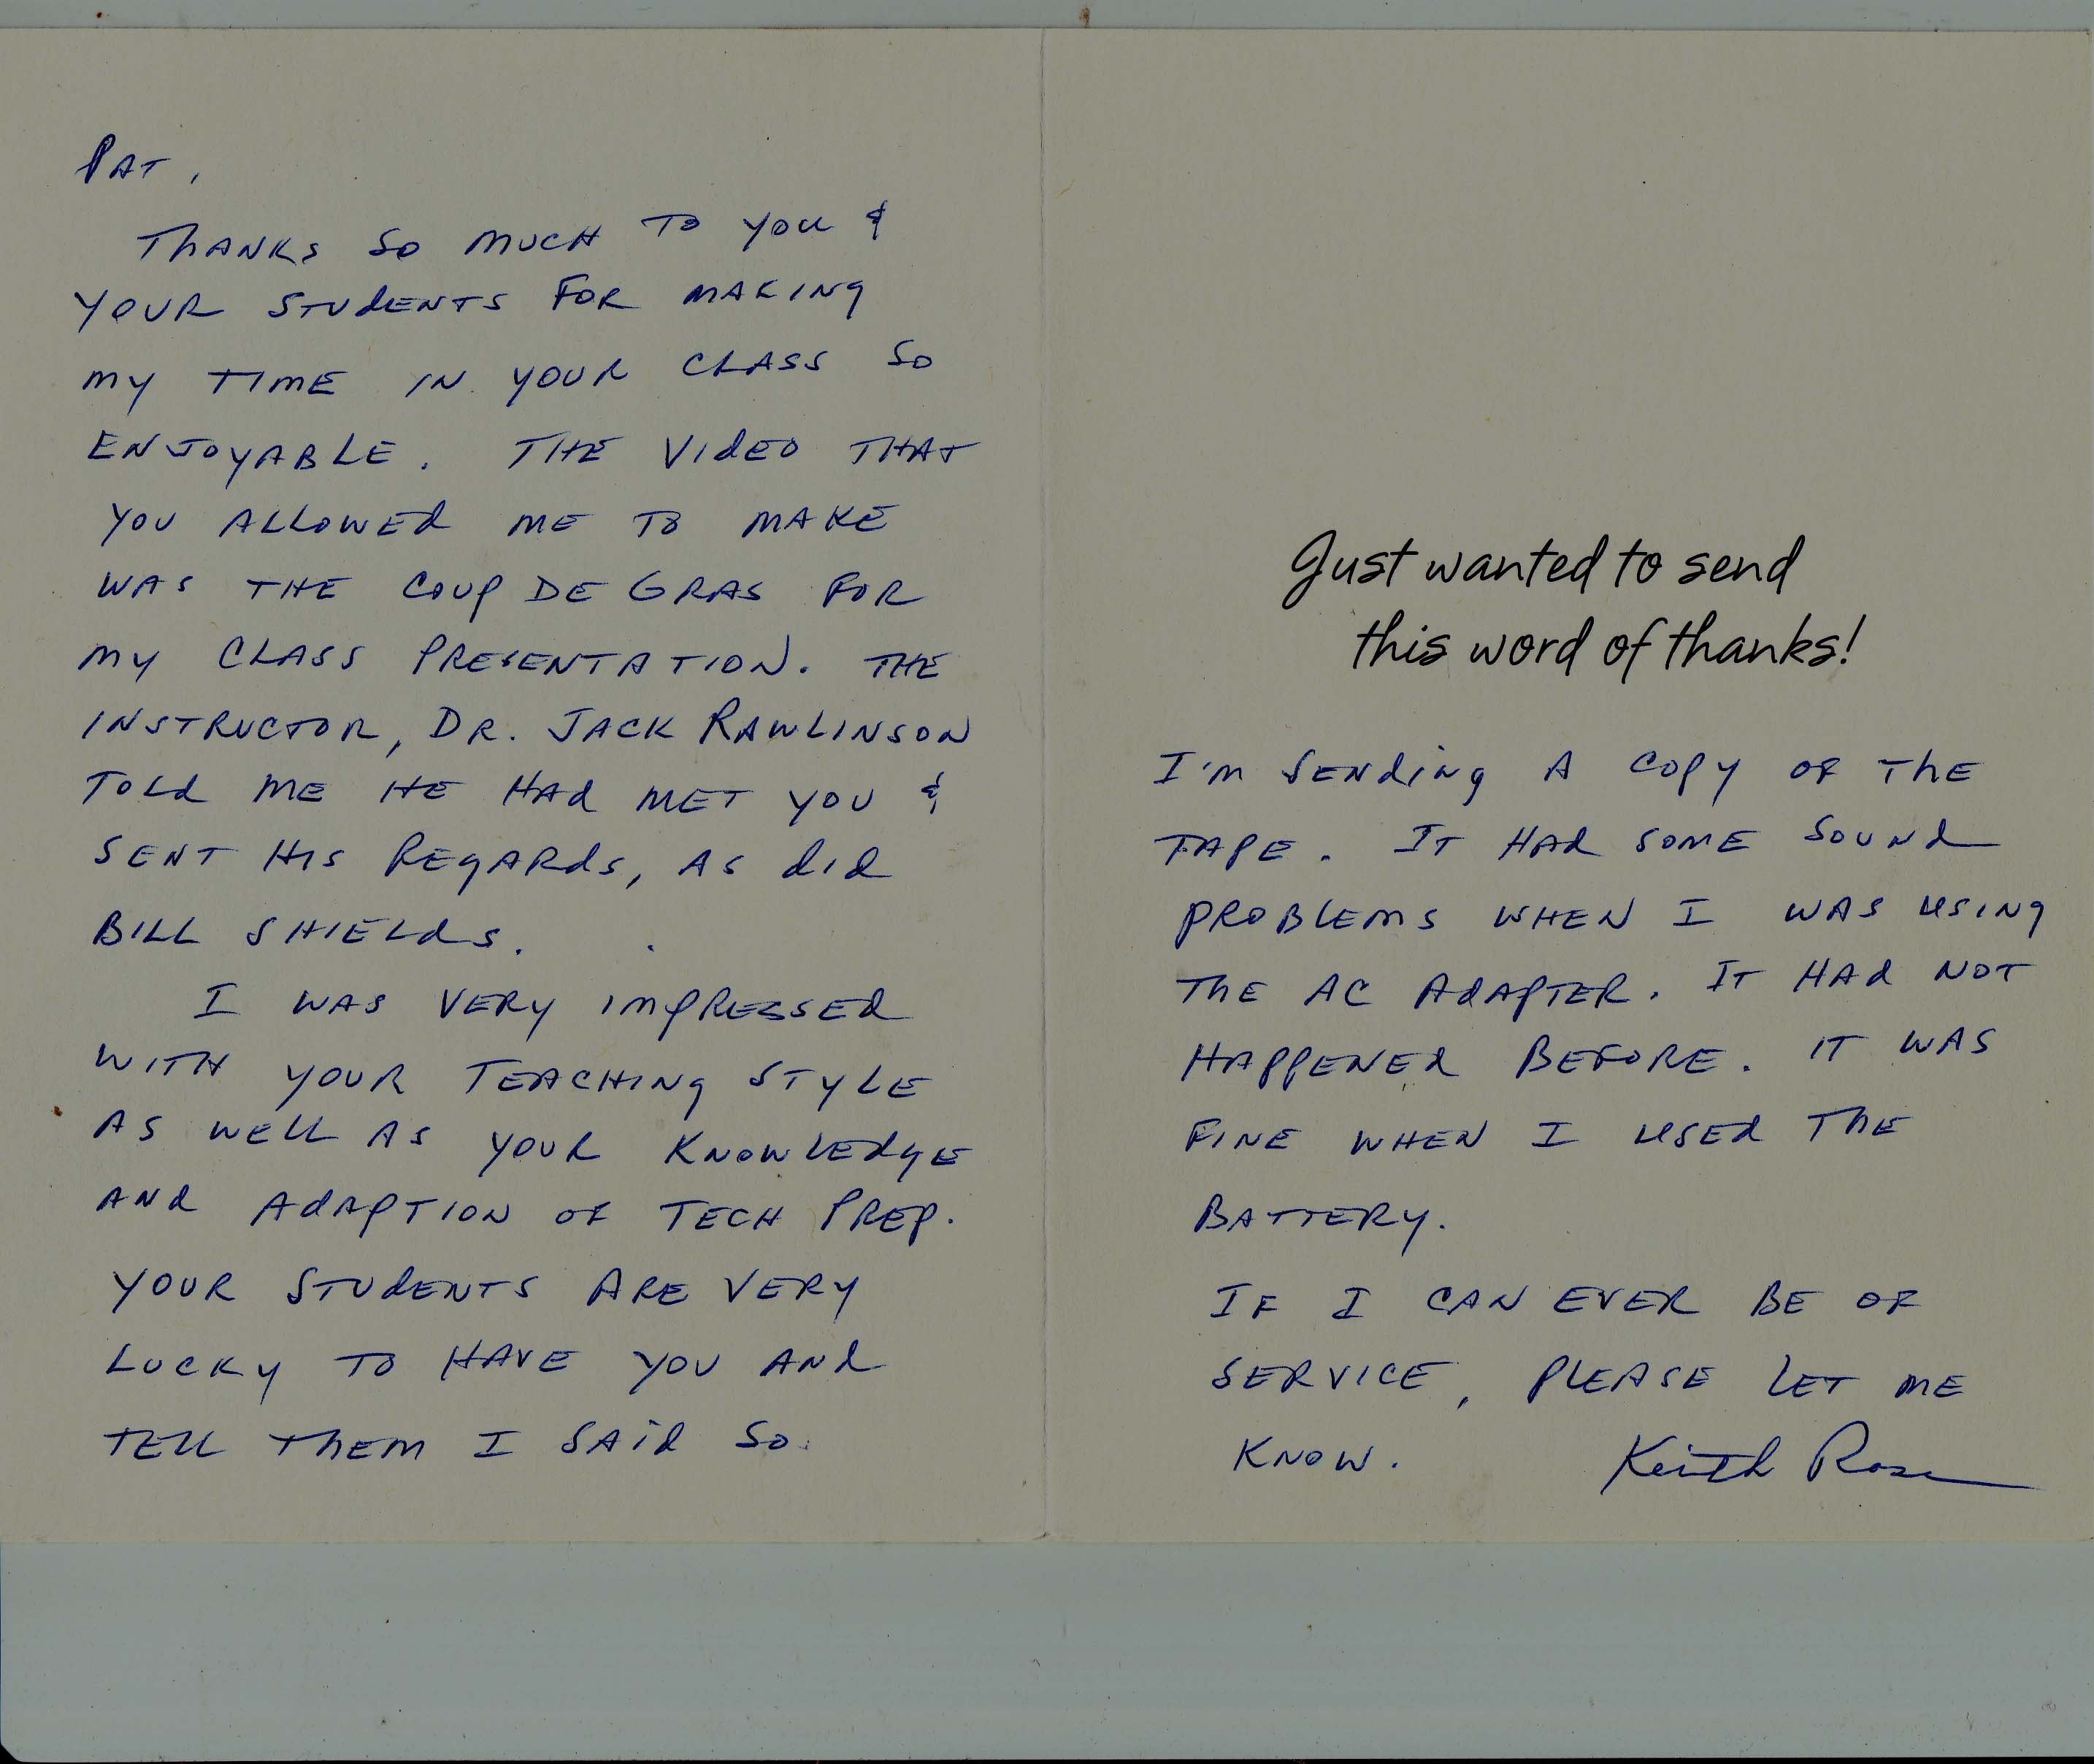 PAT,
THANKS SO MUCH TO YOU &
YOUR STUDENTS FOR MAKING
MY TIME IN YOUR CLASS SO
ENJOYABLE. THE VIDEO THAT
YOU ALLOWED ME TO MAKE
WAS THE COUP DE GRAS FOR
MY CLASS PRESENTATION. THE
INSTRUCTOR, DR. JACK RAWLINSON
TOLD ME HE HAD MET YOU &
SENT HIS REGARDS, AS DID
BILL SHIELDS.
I WAS VERY IMPRESSED
WITH YOUR TEACHING STYLE
AS WELL AS YOUR KNOWLEDGE
AND ADAPTION OF TECH PREP.
YOUR STUDENTS ARE VERY
LUCKY TO HAVE YOU AND
TELL THEM I SAID SO.
Just wanted to send
this word of thanks!
I'M SENDING A COPY OF THE
TAPE. IT HAD SOME SOUND
PROBLEMS WHEN I WAS USING
THE AC ADAPTER. IT HAD NOT
HAPPENED BEFORE. IT WAS
FINE WHEN I USED THE
BATTERY.
IF I CAN EVER BE OF
SERVICE, PLEASE LET ME
KNOW. Keith